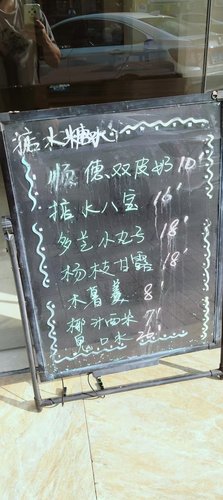 掂水糖水
顺德双皮奶10
掂水八宝16
多芝小丸子18
杨枝甘露18
木薯羹8
椰汁西米7